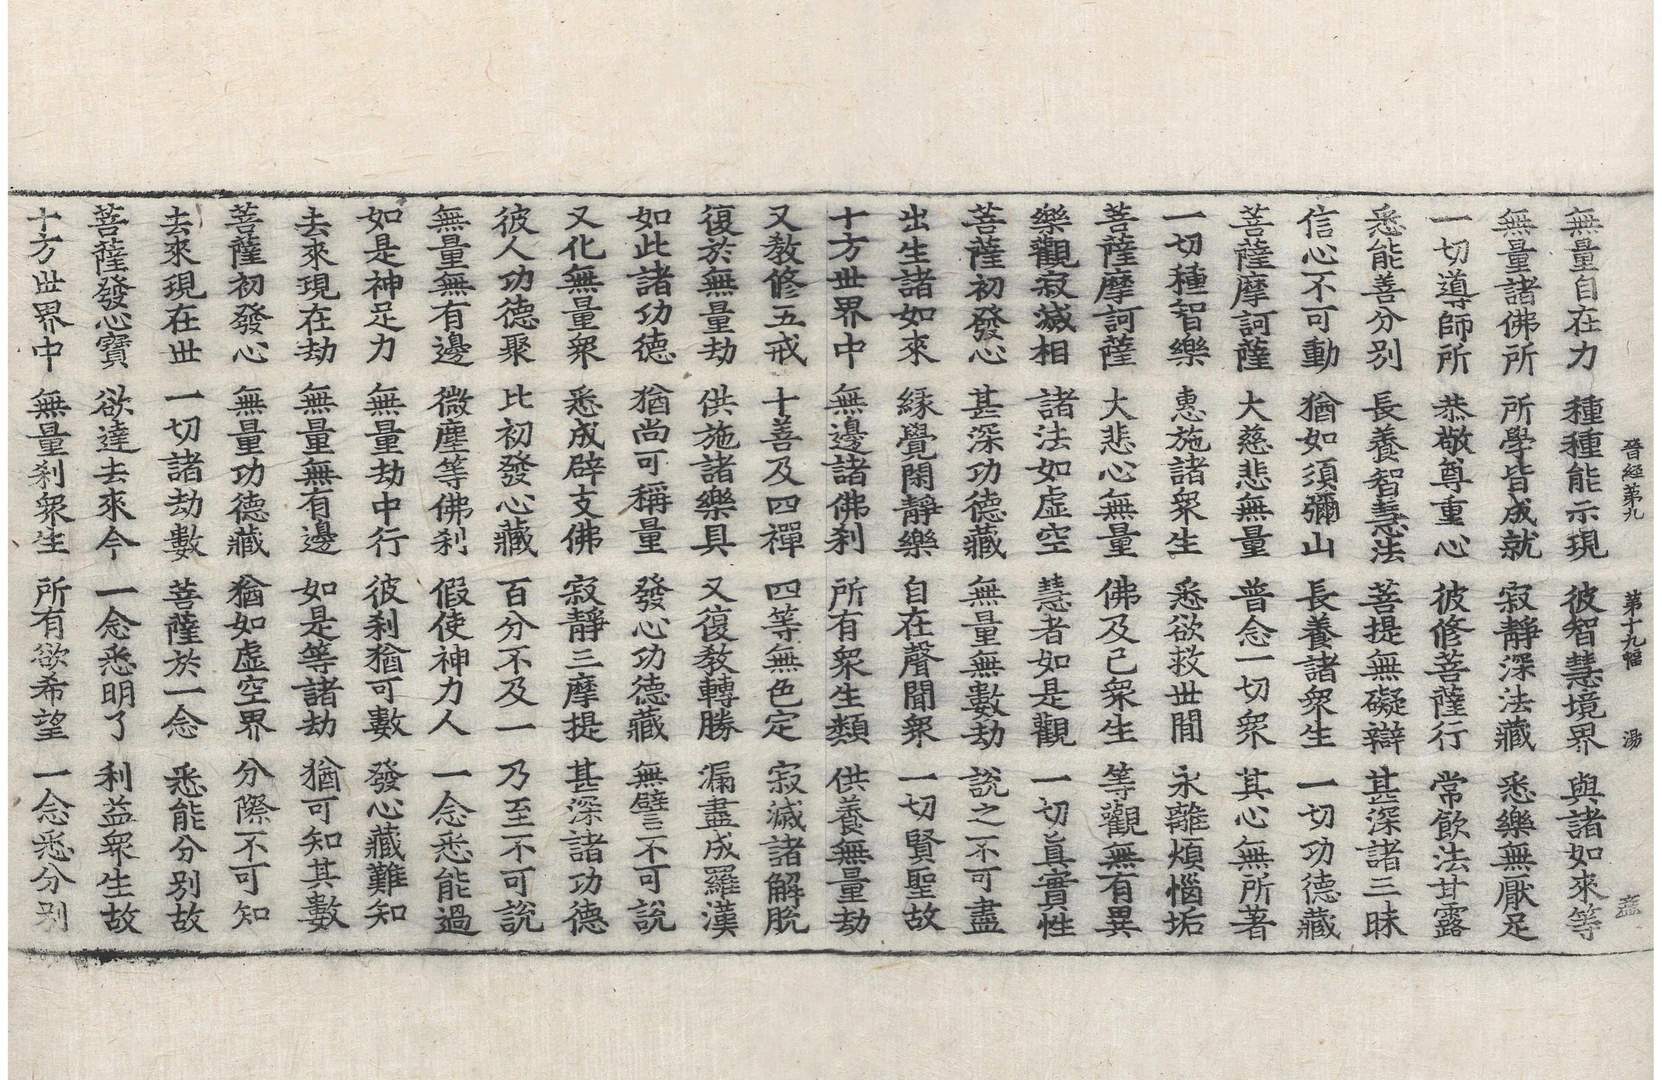 晉經第九 第十九幅 湯
無量自在力 種種能示現 彼智慧境界 與諸如來等
無量諸佛所 所學皆成就 寂靜深法藏 悉樂無厭足
一切導師所 恭敬尊重心 彼修菩薩行 常飮法甘露
悉能善分別 長養智慧法 菩提無礙辯 甚深諸三昧
信心不可動 猶如須彌山 長養諸衆生 一切功德藏
菩薩摩訶薩 大慈悲無量 普念一切衆 其心無所著
一切種智樂 惠施諸衆生 悉欲救世間 永離煩惱垢
菩薩摩訶薩 大悲心無量 佛及己衆生 等觀無有異
樂觀寂滅相 諸法如虛空 慧者如是觀 一切眞實性
菩薩初發心 甚深功德藏 無量無數劫 說之不可盡
出生諸如來 緣覺閑靜樂 自在聲聞衆 一切賢聖故
十方世界中 無邊諸佛刹 所有衆生類 供養無量劫
又敎修五戒 十善及四禪 四等無色定 寂滅諸解脫
復於無量劫 供施諸樂具 又復敎轉勝 漏盡成羅漢
如此諸功德 猶尚可稱量 發心功德藏 無譬不可說
又化無量衆 悉成辟支佛 寂靜三摩提 甚深諸功德
彼人功德聚 比初發心藏 百分不及一 乃至不可說
無量無有邊 微塵等佛刹 假使神力人 一念悉能過
如是神足力 無量劫中行 彼刹猶可數 發心藏難知
去來現在劫 無量無有邊 如是等諸劫 猶可知其數
菩薩初發心 無量功德藏 猶如虛空界 分際不可知
去來現在世 一切諸劫數 菩薩於一念 悉能分別故
菩薩發心寶 欲達去來今 一念悉明了 利益衆生故
十方世界中 無量刹衆生 所有欲希望 一念悉分別